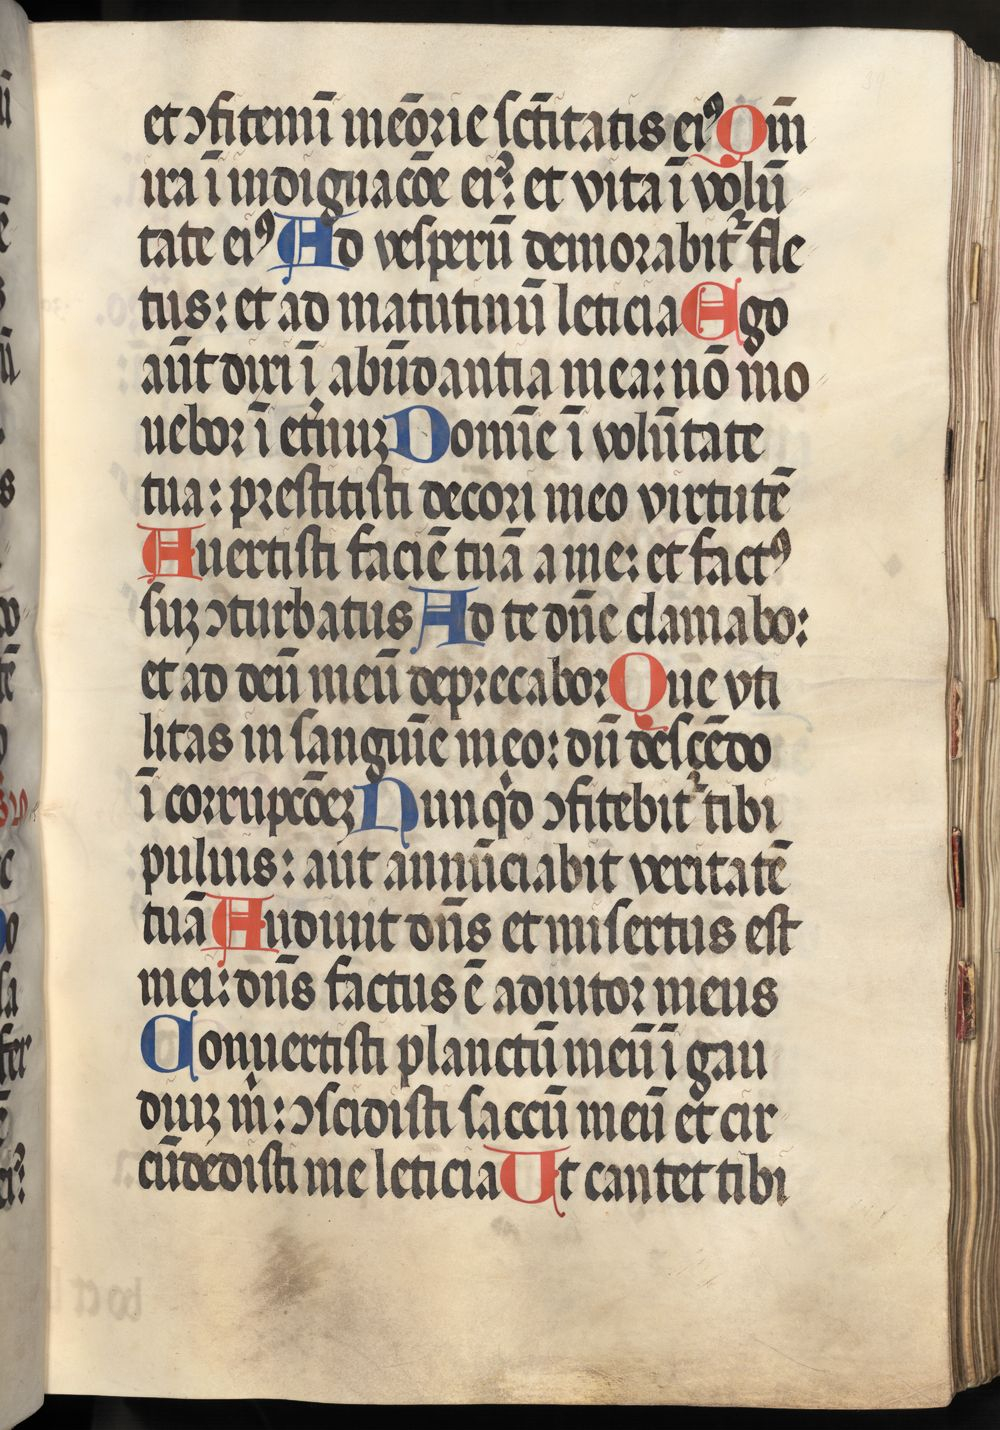 et ꝯfitemī meōrie sc̄titatis eiꝰ Qm̄
ira ī indignacōe eiꝰ: et vita ī volū
tate eiꝰ Ad vesperū demorabit᷑ fle
tus: et ad matutinū leticia Ego
aūt dixi ī abūdantia mea: nō mo
uebor ī et̓nuꝫ Domīe ī volūtate
tua: prestitisti decori meo virtutē
Auertisti faciē tuā a me: et factꝰ
suꝫ ꝯturbatus Ad te dn̄e clamabo:
et ad deū meū deprecabor Que vti
litas in sanguīe meo: dū descēdo
ī corrupcōeꝫ Nunqͥd ꝯfitebit᷑ tibi
puluis: aut annūciabit veritatē
tuā Audiuit dn̄s et misertus est
mei: dn̄s factus ē adiutor meus
Conuertisti planctū meū ī gau
diuꝫ m̄: ꝯscidisti saccū meū et cir
cūdedisti me leticia Ut cantet tibi